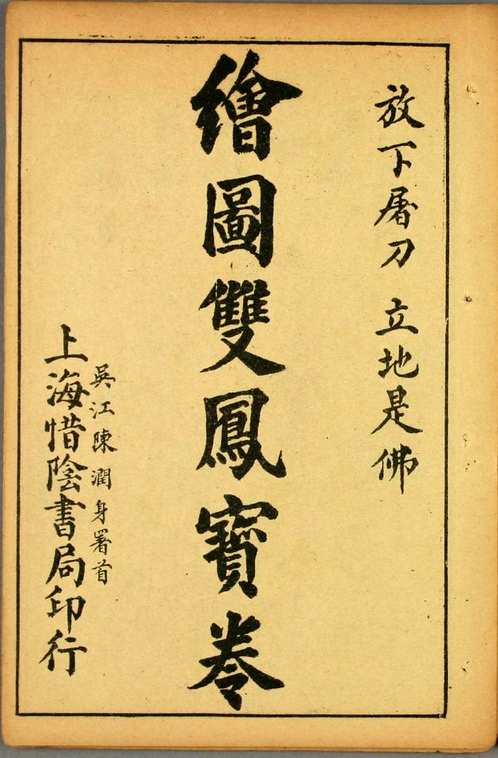 放下屠刀 立地是佛
繪圖雙鳳寶卷
吳江陳潤身署首
上海惜陰書局印行